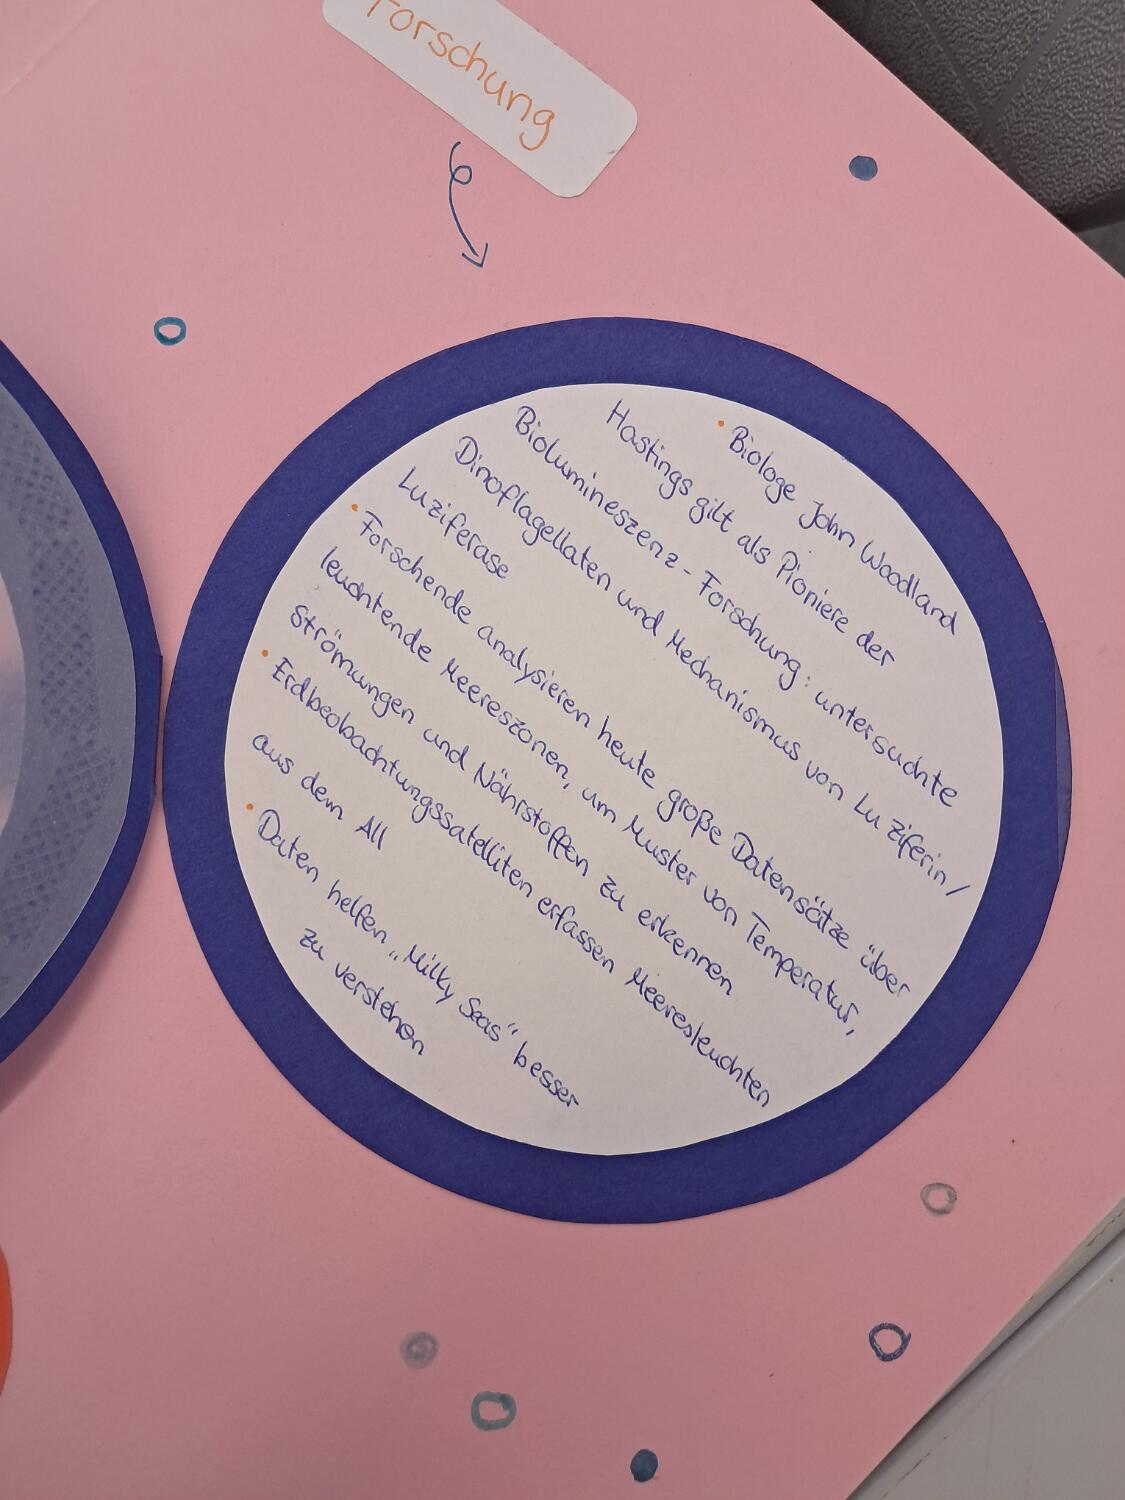 Forschung
• Biologe John Woodland
Hastings gilt als Pioniere der
Biolumineszenz-Forschung: untersuchte
Dinoflagellaten und Mechanismus von Luziferin/
Luziferase
• Forschende analysieren heute große Datensätze über
leuchtende Meereszonen, um Muster von Temperatur,
Strömungen und Nährstoffen zu erkennen
• Erdbeobachtungssatelliten erfassen Meeresleuchten
aus dem All
• Daten helfen „Milky Seas" besser
zu verstehen